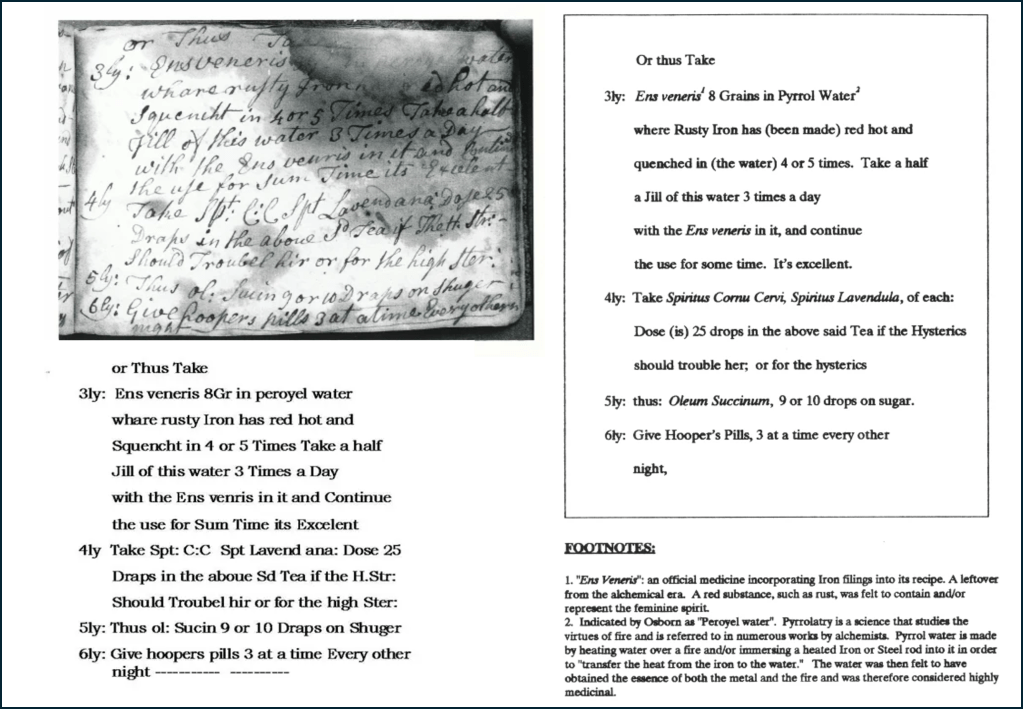 or Thus Ta
3ly: Ens veneris water
whare rusty Iron red hot and
Squencht in 4 or 5 Times Take a half
Jill of this water 3 Times a Day
with the Ens venris in it and Continue
the use for Sum Time its Excelent
4ly Take Spt: C:C Spt Lavend ana: Dose 25
Draps in the aboue Sd Tea if Str:
Should Troubel hir or for the high Ster:
5ly: Thus ol: Sucin 9 or 10 Draps on Shuger
6ly: Give hoopers pills 3 at a time Every other
night
or Thus Take
3ly: Ens veneris 8Gr in peroyel water
whare rusty Iron has red hot and
Squencht in 4 or 5 Times Take a half
Jill of this water 3 Times a Day
with the Ens venris in it and Continue
the use for Sum Time its Excelent
4ly Take Spt: C:C Spt Lavend ana: Dose 25
Draps in the aboue Sd Tea if the H.Str:
Should Troubel hir or for the high Ster:
5ly: Thus ol: Sucin 9 or 10 Draps on Shuger
6ly: Give hoopers pills 3 at a time Every other
night ----------- ----------
Or thus Take
3ly: Ens veneris¹ 8 Grains in Pyrrol Water²
where Rusty Iron has (been made) red hot and
quenched in (the water) 4 or 5 times. Take a half
a Jill of this water 3 times a day
with the Ens veneris in it, and continue
the use for some time. It's excellent.
4ly: Take Spiritus Cornu Cervi, Spiritus Lavendula, of each:
Dose (is) 25 drops in the above said Tea if the Hysterics
should trouble her; or for the hysterics
5ly: thus: Oleum Succinum, 9 or 10 drops on sugar.
6ly: Give Hooper's Pills, 3 at a time every other
night,
FOOTNOTES:
1. "Ens Veneris": an official medicine incorporating Iron filings into its recipe. A leftover
from the alchemical era. A red substance, such as rust, was felt to contain and/or
represent the feminine spirit.
2. Indicated by Osborn as "Peroyel water". Pyrrolatry is a science that studies the
virtues of fire and is referred to in numerous works by alchemists. Pyrrol water is made
by heating water over a fire and/or immersing a heated Iron or Steel rod into it in order
to "transfer the heat from the iron to the water." The water was then felt to have
obtained the essence of both the metal and the fire and was therefore considered highly
medicinal.